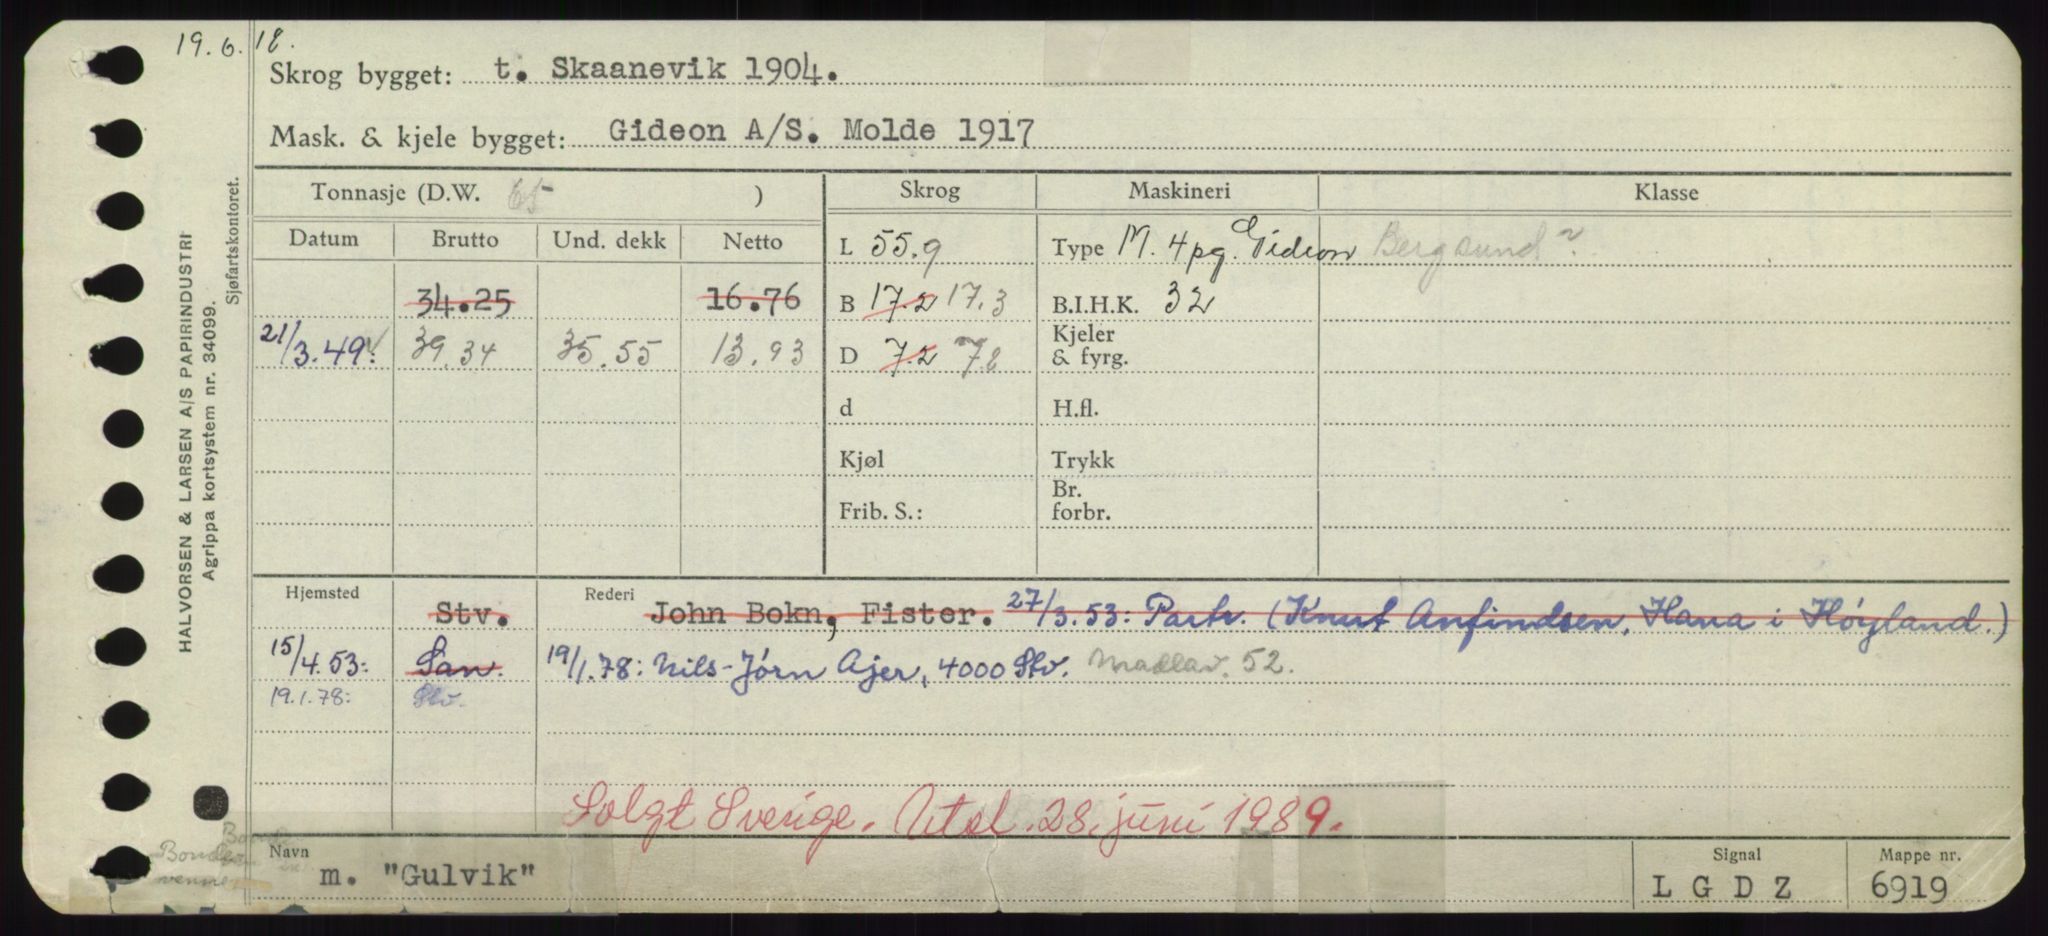 19.6.18.
Skrog bygget: t. Skaanevik 1904.
Mask. & kjele bygget: Gideon A/S. Molde 1917
Tonnasje (D.W. ) Skrog Maskineri Klasse
Datum Brutto Und. dekk Netto
L 55.9 Type M. 4pg. Gideon Bergsund
34.25 16.76 B 17.2 17.3 B.I.H.K. 32
21/3.49: 39.34 35.55 13.93 D 7.2 7.2 Kjeler & fyrg.
d H.fl.
Kjøl Trykk
Frib. S.: Br. forbr.
Hjemsted Stv. Rederi John Bokn, Fister. 27/3.53: Partr. (Knut Anfindsen, Hana i Høyland.)
15/4.53: San. 19/1.78: Nils-Jørn Ajer, 4000 Stv. Madlav. 52.
19.1.78: Stv.
Solgt Sverige. Utsl. 28. juni 1989.
Navn m. "Gulvik" Signal LGDZ Mappe nr. 6919
HALVORSEN & LARSEN A/S PAPIRINDUSTRI
Agrippa kortsystem nr. 34099.
Sjøfartskontoret.